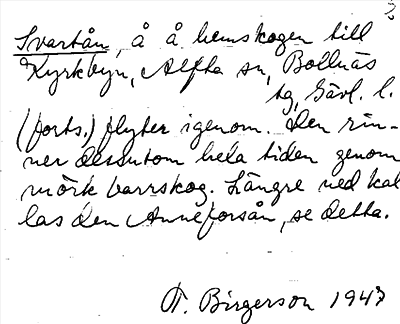 2
Svartån, å å hemskogen till
Kyrkbyn, Alfta sn, Bollnäs
tg, Gävl. l.
(forts.) flyter igenom. Den rin-
ner dessutom hela tiden genom
mörk barrskog. Längre ned kal
las den Anneforsån, se detta.
T. Birgerson 1947